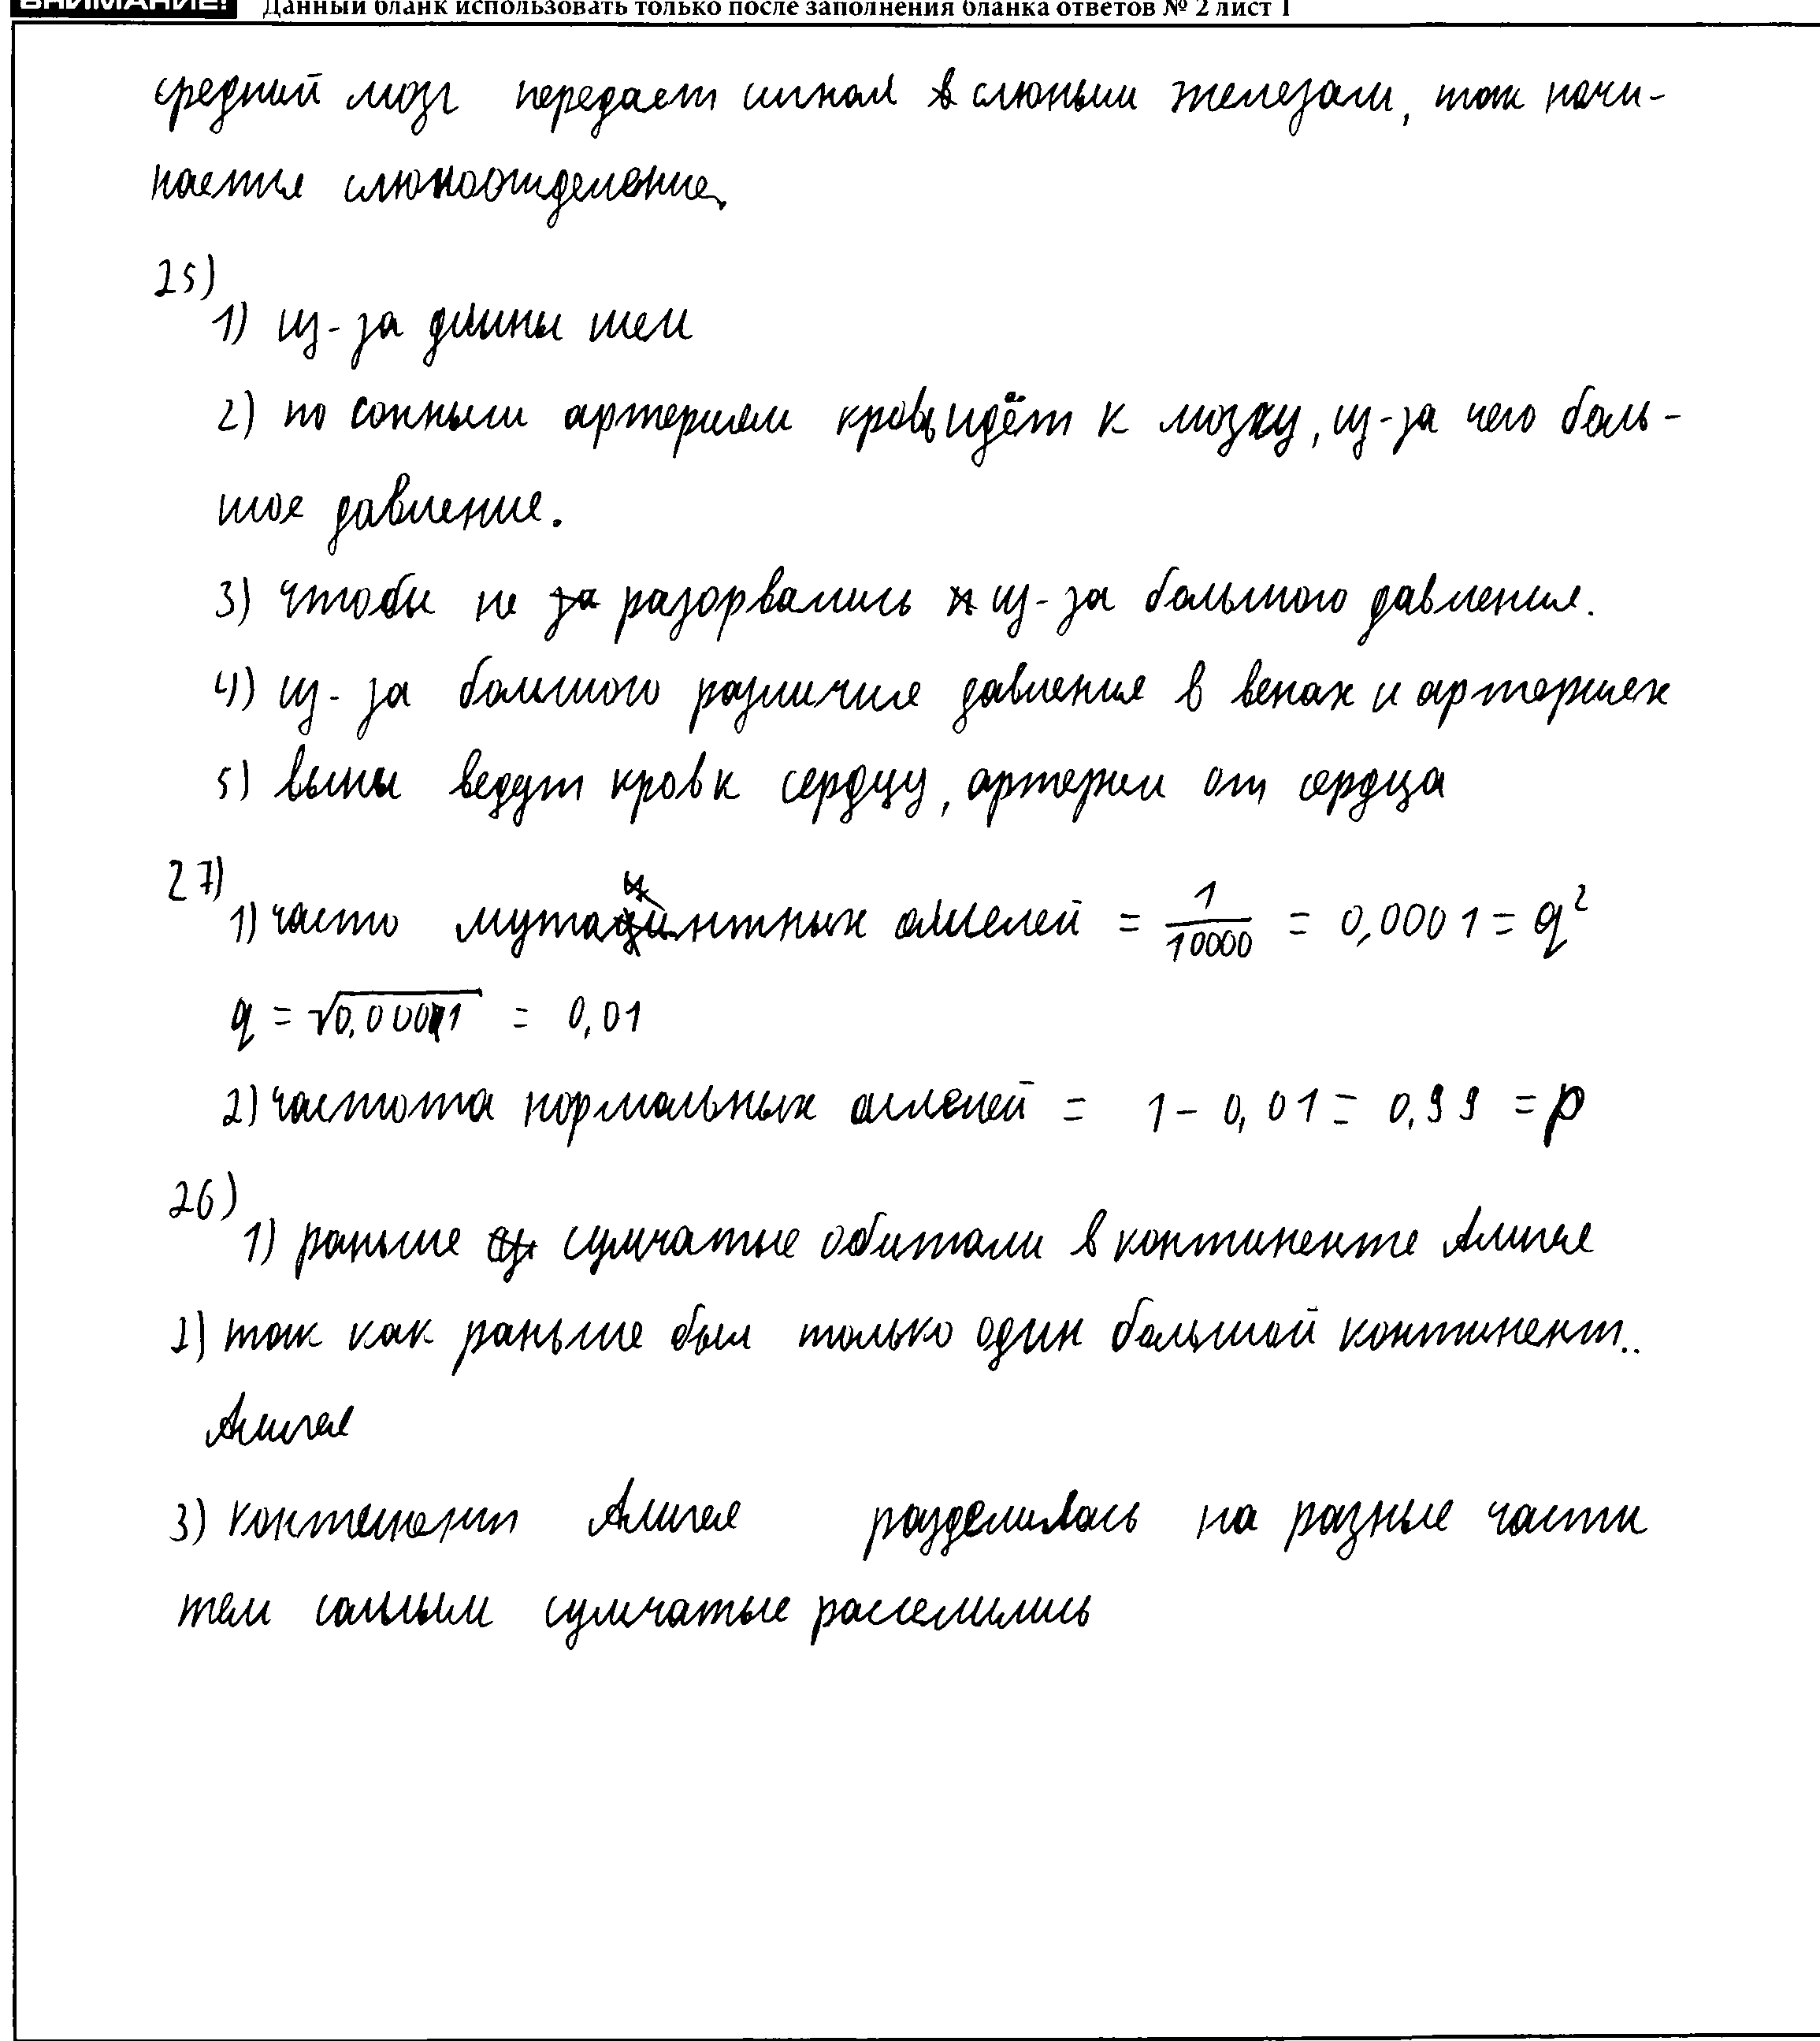 ВНИМАНИЕ! Данный бланк использовать только после заполнения бланка ответов № 2 лист 1
средний мозг передает сигнал в слюным железам, так начи-
нается слюноотделение.
25)
1) из-за длины шеи
2) по сонным артериям кровь идёт к мозку, из-за чего боль-
шое давление.
3) чтобы не за разорвались из-за большого давления.
4) из-за большого различия давления в венах и артериях
5) выны ведут кровь к сердцу, артерии от сердца
27)
1) часто мутантных аллелей = 1/10000 = 0,0001 = q²
q = √0,0001 = 0,01
2) частота нормальных аллелей = 1 - 0,01 = 0,99 = p
26)
1) раньше сумчатые обитали в континенте
2) так как раньше был только один большой континент..
3) континент разделилась на разные части
тем самым сумчатые расселились